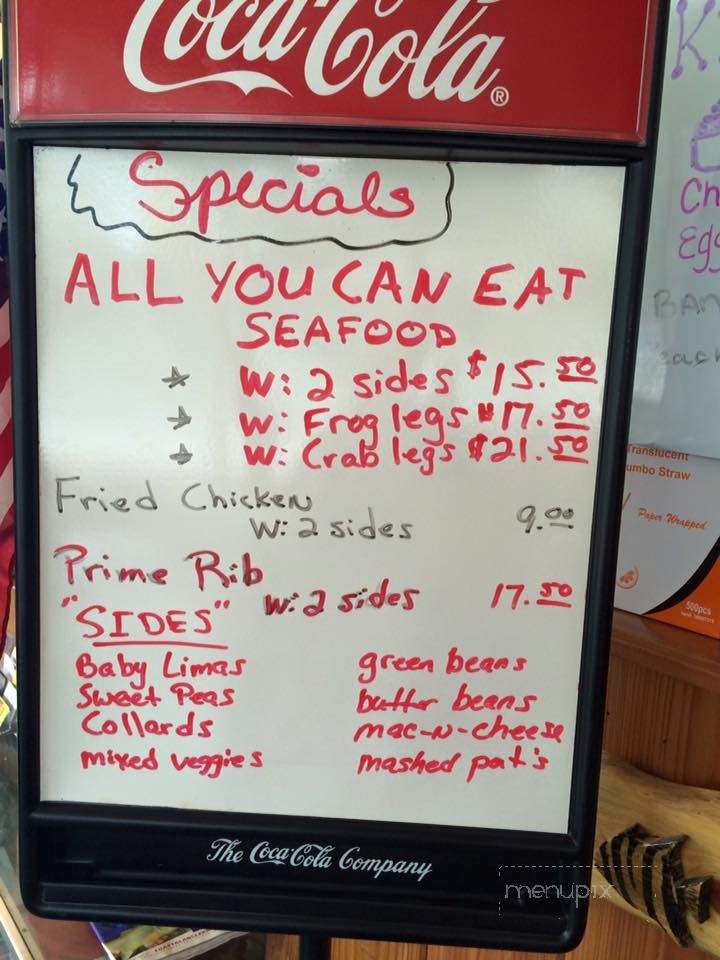 Coca-Cola®
Specials
ALL YOU CAN EAT
SEAFOOD
W: 2 sides $15.50
W: Frog legs $17.50
W: Crab legs $21.50
Fried Chicken
W: 2 sides 9.00
Prime Rib
W: 2 sides 17.50
"SIDES"
Baby Limas green beans
Sweet Peas butter beans
Collards mac-n-cheese
mixed veggies mashed pot's
The Coca-Cola Company
menupix
Translucent
umbo Straw
Paper Wrapped
500pcs